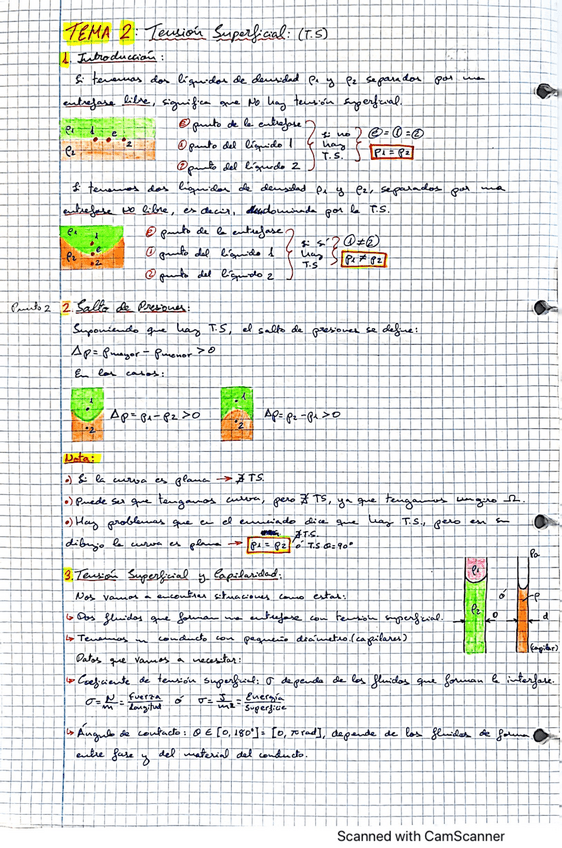 TEMA 2: Tensión Superficial: (T.S)
1. Introducción:
Si tenemos dos líquidos de densidad ρ1 y ρ2 separados por una
entrefase libre, significa que NO hay tensión superficial.
ρ1 1 e
ρ2 2
ⓔ punto de la entrefase
① punto del líquido 1
② punto del líquido 2
si no hay T.S.
ⓔ = ① = ②
P1 = P2
Si tenemos dos líquidos de densidad ρ1 y ρ2, separados por una
entrefase NO libre, es decir, dominada por la T.S.
ρ1 1
ρ2 e
2
ⓔ punto de la entrefase
① punto del líquido 1
② punto del líquido 2
si sí hay T.S
① ≠ ②
P1 ≠ P2
Punto 2
2. Salto de Presiones:
Suponiendo que hay T.S, el salto de presiones se define:
Δp = Pmayor - Pmenor > 0
En los casos:
1
2
Δp = P1 - P2 > 0
1
2
Δp = P2 - P1 > 0
Nota:
•) Si la curva es plana → ∄ TS.
•) Puede ser que tengamos curva, pero ∄ TS, ya que tengamos un giro Ω.
•) Hay problemas que en el enunciado dice que hay T.S., pero en su
dibujo la curva es plana → P1 = P2 ∄ T.S. ó T.S θ=90°
3. Tensión Superficial y Capilaridad:
Nos vamos a encontrar situaciones como estas:
↳ Dos fluidos que forman una entrefase con tensión superficial.
↳ Tenemos un conducto con pequeño diámetro (capilares)
ρ1
ρ2
D
ó
Pa
ρ
d
(capilar)
Datos que vamos a necesitar:
↳ Coeficiente de tensión superficial: σ depende de los fluidos que forman la interfase.
σ = N/m = Fuerza/Longitud ó σ = J/m² = Energía/Superficie
↳ Ángulo de contacto: θ ∈ [0, 180°] = [0, π rad], depende de los fluidos de forma
entre fase y del material del conducto.
Scanned with CamScanner